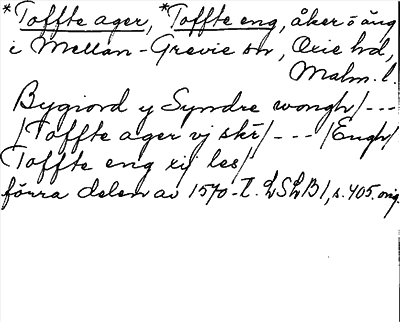 *Toffte ager, *Toffte eng, åker o äng
i Mellan-Grevie sn, Oxie hd,
Malm. l.
Bygiord y Syndre wongh/---
/Toffte ager vj skr/---/Engh/
Toffte eng xij les/
förra delen av 1570-t. LSLB1, s. 405. orig.